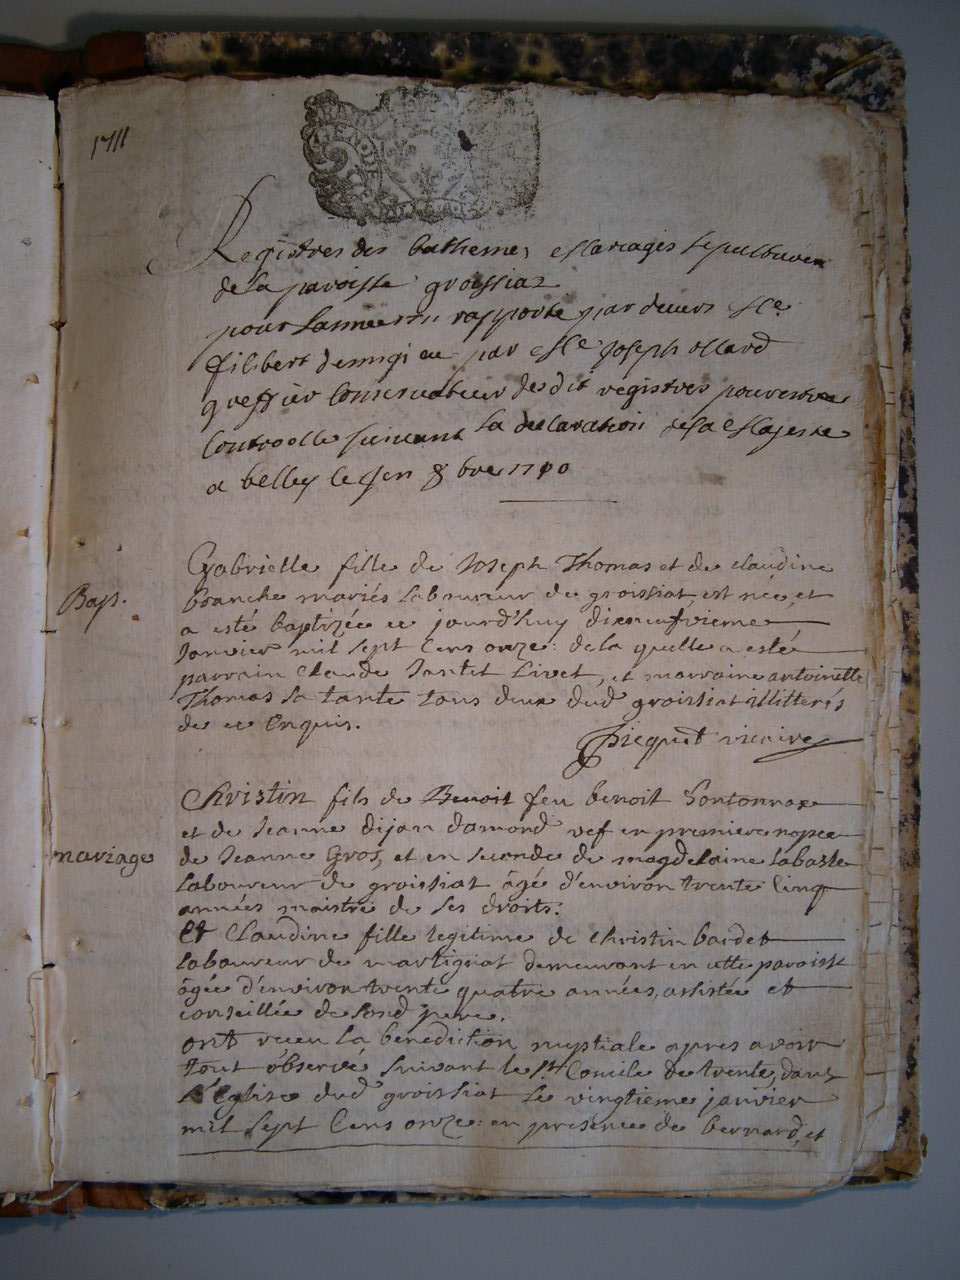 1711
GEN · DE
Registres des batheme, Mariages sepultures
de la paroisse groissiaz
pour Lannee 1711 rapporte par devers Me.
filibert par Me Joseph
greffier Conservateur desdit registres pour estre
Controolle suivant la declaration de sa Majeste
a belley le 8bre 1710
Bap.
Gabrielle fille de Joseph Thomas et de claudine
branche mariés laboureur de groissiat, est née, et
a esté baptizée ce jourd'huy dixneufvieme
Janvier mil sept Cens onze: de la quelle a esté
parrain Claude Jantet Livet, et marraine antoinette
Thomas sa tante tous deux dud groissiat illitterés
de ce Enquis.
Picquet vicaire
mariage
Christin fils de Benoit feu benoit Sontonnax
et de Jeanne dijan damond vef en premiere nopce
de Jeanne Gros, et en seconde de magdelaine labaste
Laboureur de groissiat âgé d'environ trente Cinq
années maistre de ses droits:
Et Claudine fille legitime de Christin bardet
laboureur de martignat demeurant en cette paroisse
âgée d'environ trente quatre années, assistée et
conseillée de sond pere.
ont receu la benediction nuptiale apres avoir
tout observé suivant le St Concile de trente, dans
l'Eglise dud groissiat le vingtieme janvier
mil sept Cens onze: en presence de bernard, et